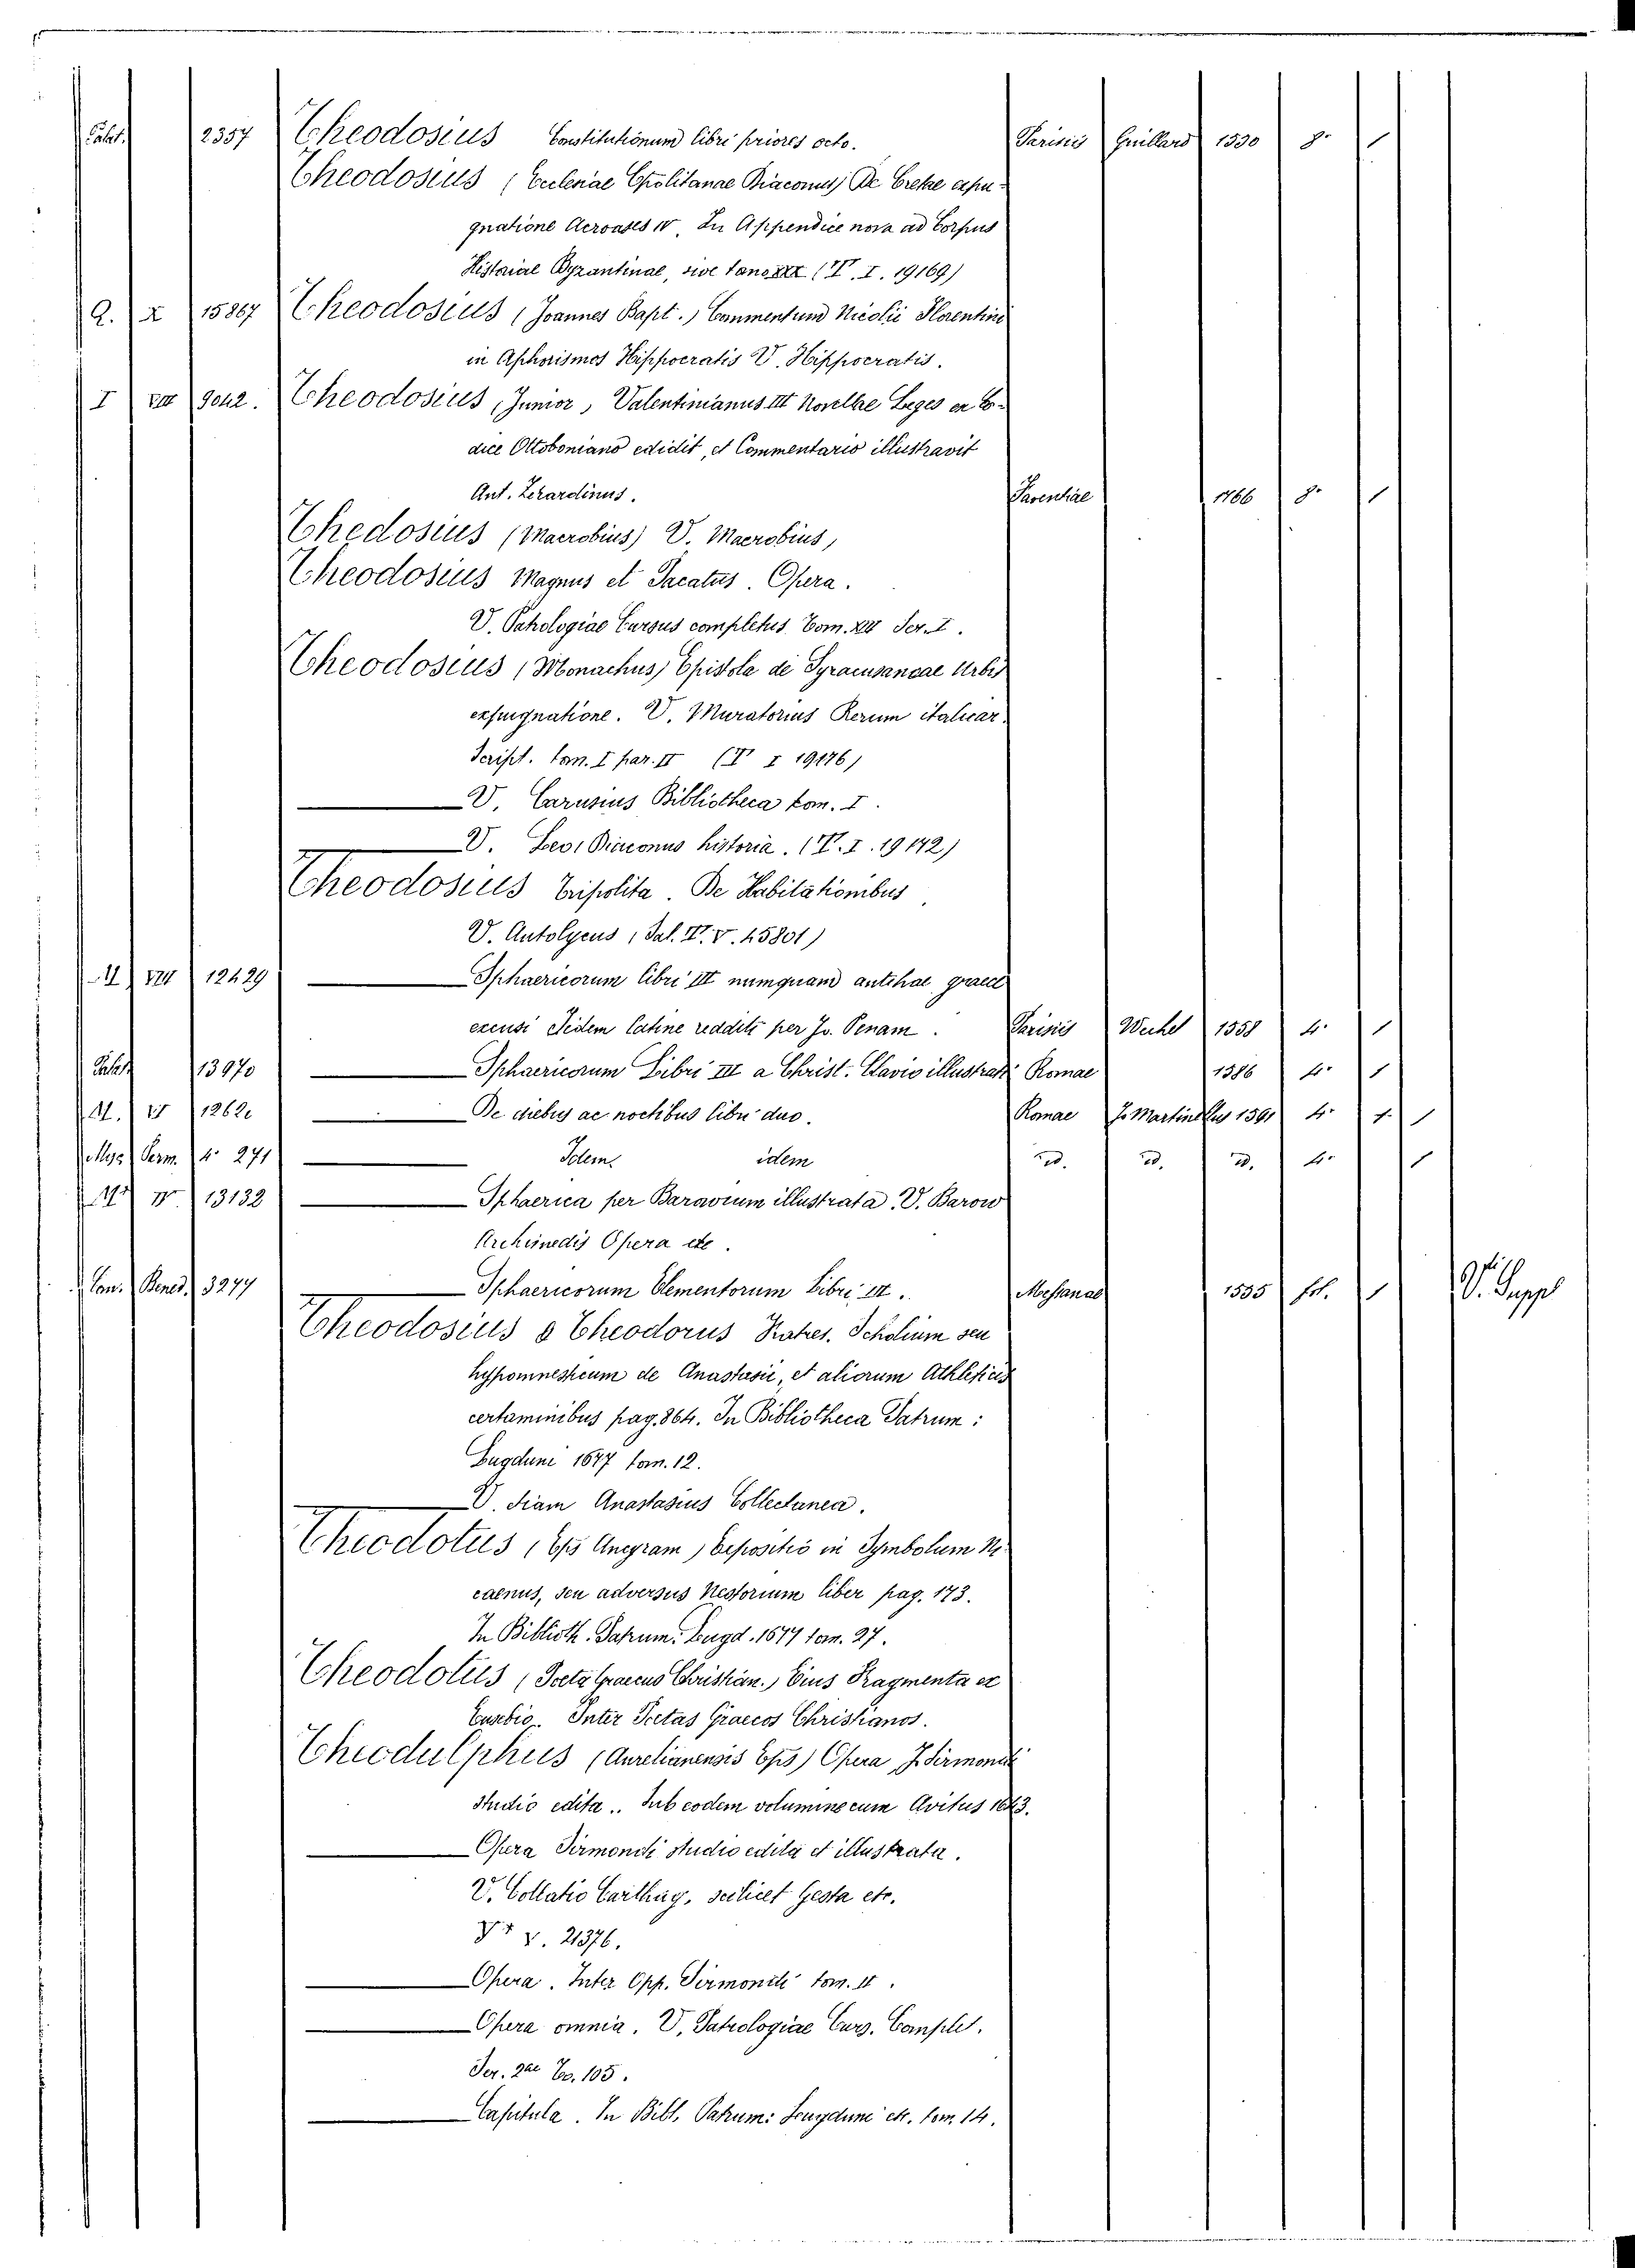 2357 Theodosius Constitutionum libri priores octo. Parisiis Guillard 1530 8° 1
Theodosius (Ecclesiae Cpolitanae Diaconus) De Cretae expu-
gnatione Acroases IV. In Appendice nova ad Corpus
Historiae Byzantinae, sive (T. I. 19169)
Q. X 15867 Theodosius (Joannes Bapt.) Commentum Nicolii Florentini
in Aphorismos Hippocratis V. Hippocratis.
I VIII 9042. Theodosius, Junior, Valentinianus III Novellae Leges ex Co-
dice Ottoboniano edidit, et Commentario illustravit
Ant. Zirardinus. Faventiae 1766 8° 1
Thedosius (Macrobius) V. Macrobius,
Theodosius Magnus et Pacatus. Opera.
V. Pathologiae Cursus completus Tom. Ser. I.
Theodosius (Monachus) Epistola de Syracusancae Urbis
expugnatione. V. Muratorius Rerum italicar.
Script. tom. I par. II (T I 19176)
V. Carusius Bibliotheca tom. I.
V. Leo, Diaconus historia. (T. I. 19142)
Theodosius Tripolita. De Habitationibus
V. Autolycus (Sal. T. V. 45801)
II VIII 12429 Sphaericorum libri III numquand antehac graece
excusi Iidem latine redditi per Jo. Penam. Parisiis Wechel 1558 4° 1
13970 Sphaericorum Libri III a Christ. Clavio illustrati Romae 1586 4° 1
De diebus ac noctibus libri duo. Romae J. Martinellus 1591 4° 1 1
Mss Perm. 4° 271 Idem idem id. id. id. 4° 1
IV 13132 Sphaerica per Baravium illustrata. V. Barow
Archimedis Opera etc.
Con. Bened. 3277 Sphaericorum Elementorum Libri III. Messanae 1535 fol. 1 V. Suppl
Theodosius & Theodorus Fratres. Scholium seu
hypomnesticum de Anastasii, et aliorum Athleticis
certaminibus pag. 864. In Bibliotheca Patrum:
Lugduni 1677 tom. 12.
V. etiam Anastasius Collectanea.
Theodotus (Eps Ancyram) Expositio in Symbolum Ni
caenus, seu adversus Nestorium liber pag. 173.
In Biblioth. Patrum. Lugd. 1677 tom. 27.
Theodotus (Poeta Graecus Christian.) Eius Fragmenta ex
Eusebio. Inter Poetas Graecos Christianos.
Theodulphus (Aurelianensis Eps) Opera J. Sirmondi
studio edita.. Sub eodem volumine cum Avitus 1643.
Opera Sirmondi studio edita et illustrata.
V. Collatio Carthag, scilicet Gesta etc.
V. 21376.
Opera. Inter Opp. Sirmondi tom. II.
Opera omnia. V. Patrologiae Curs. Complet.
Ser. 2ae To. 105.
Capitula. In Bibl. Patrum: Lougduni etc. tom. 14.